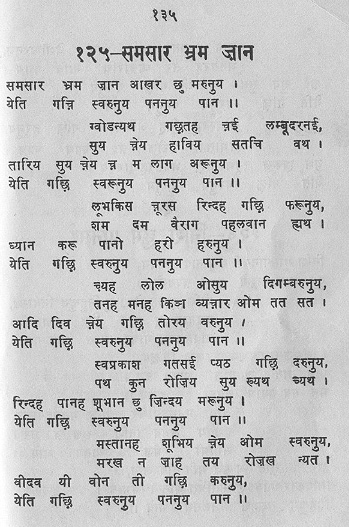 १३५
१२५-समसार भ्रम ज़ान
समसार भ्रम ज़ान आखर छु मरुनुय ।
येति गछ़ि स्वरुनुय पननुय पान ।।
ग्वोडन्यथ गछ़तह च़ई लम्बूदरनई,
सुय च़ेय हाविय सतचि वथ ।
तारिय सुय च़ेय च़ म लाग अरूनुय ।
येति गछ़ि स्वरूनुय पननुय पान ।।
लूभकिस च़ूरस रिन्दह गछ़ि फरूनुय,
शम दम वैराग पहलवान ह्यथ ।
ध्यान करू पानो हरो हरुनुय ।
येति गछ़ि स्वरुनुय पननुय पान ।।
च़्यह लोल ओसुय दिगम्बरुनुय,
तनह मनह किञ व्यच़ार ओम तत सत ।
आदि दिव च़ेय गछ़ि तोरय वरुनुय ।
येति गछ़ि स्वरुनुय पननुय पान ।।
स्वप्रकाश गतसई प्यठ गछ़ि दरुनुय,
पथ कुन रोज़िय सुय ख्यथ च्यथ ।
रिन्दह पानह शूभान छु ज़िन्दय मरूनुय ।
येति गछ़ि स्वरुनुय पननुय पान ।।
मस्तानह शूभिय च़ेय ओम स्वरुनुय,
मरख न ज़ाह तय रोज़ख न्यत ।
वीदव यी वोन ती गछ़ि करुनुय,
येति गछ़ि स्वरुनुय पननुय पान ।।